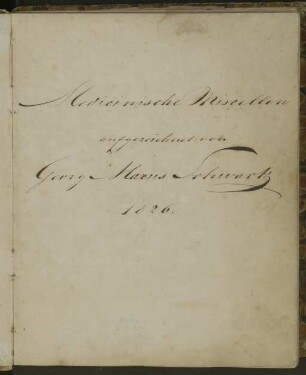 Medicinische Miscellen
aufgezeichnet von
Georg Marius Schwartz
1826.